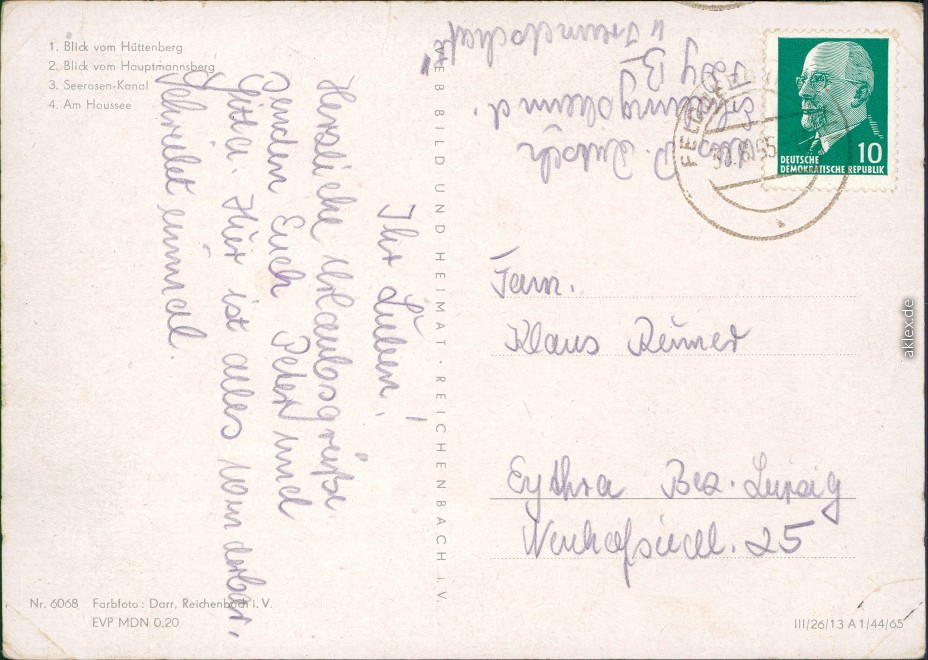 1. Blick vom Hüttenberg
2. Blick vom Hauptmannsberg
3. Seerosen-Kanal
4. Am Haussee
Ihr Lieben!
Herzliche Urlaubsgrüße
senden Euch Peter und
Gitta. Hier ist alles wunderbar.
Schreibt einmal.
VEB BILD UND HEIMAT · REICHENBACH I. V.
DEUTSCHE
DEMOKRATISCHE REPUBLIK
10
Fam.
Klaus
Eythra Bez. Leipzig
25
Nr. 6068 Farbfoto: Darr, Reichenbach i. V.
EVP MDN 0,20
III/26/13 A 1/44/65
aklex.de